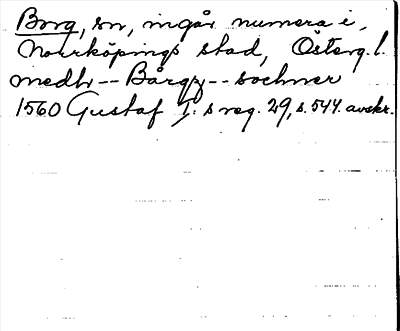 Borg, sn, ingår numera i,
Norrköpings stad, Österg. l.
medh -- Bårgz -- sochner
1560 Gustaf I: s reg. 29, s. 544. avskr.